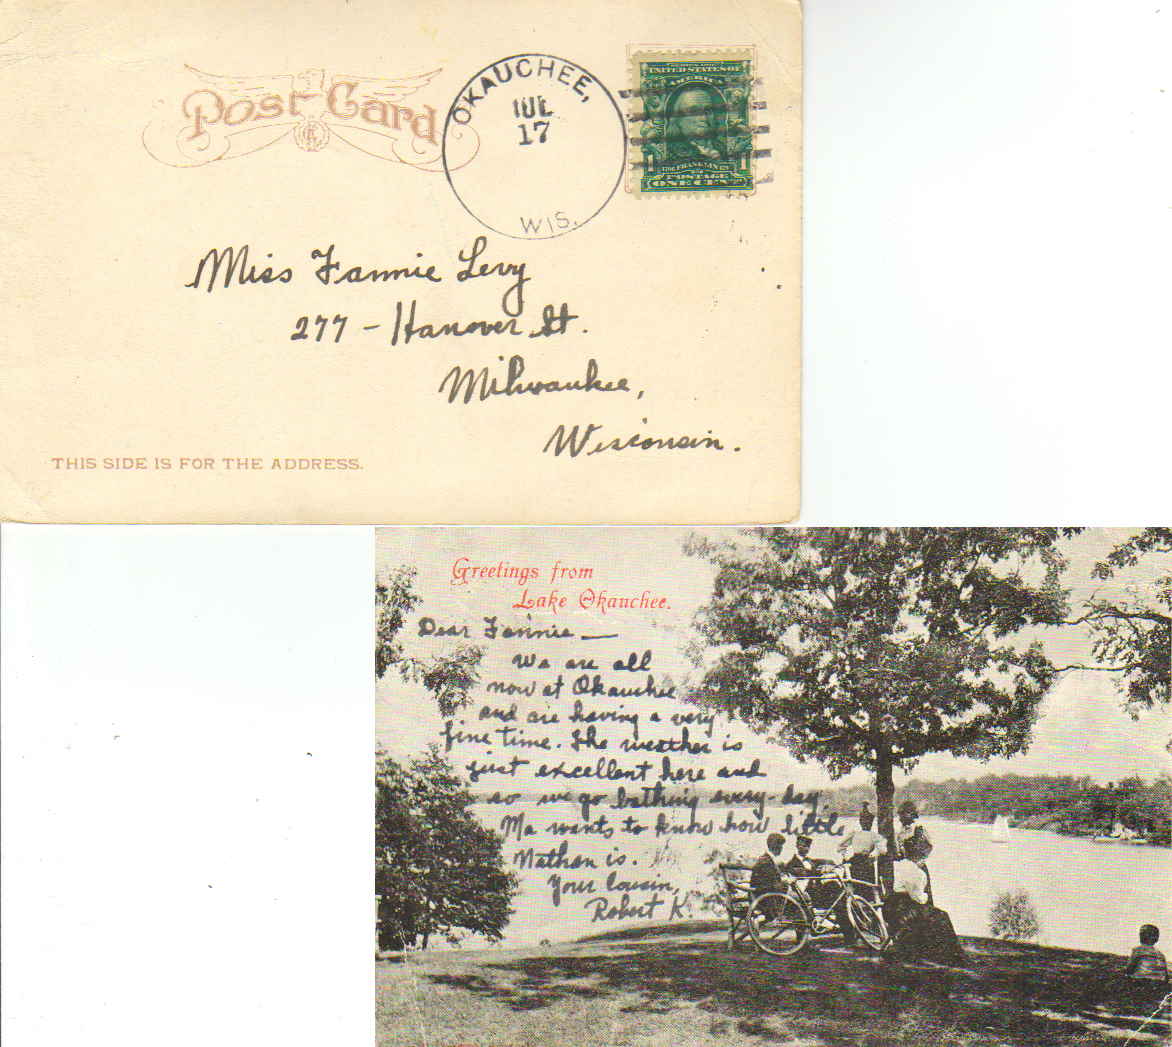 Post Card
OKAUCHEE,
JUL
17
WIS.
UNITED STATES OF
AMERICA
1 FRANKLIN 1
POSTAGE
ONE CENT
Miss Fannie Levy
277 - Hanover St.
Milwaukee,
Wisconsin.
THIS SIDE IS FOR THE ADDRESS.
Greetings from
Lake Okauchee.
Dear Fannie —
We are all
now at Okauchee
and are having a very
fine time. The weather is
just excellent here and
so we go bathing every-day.
Ma wants to know how little
Nathan is.
Your Cousin,
Robert K.